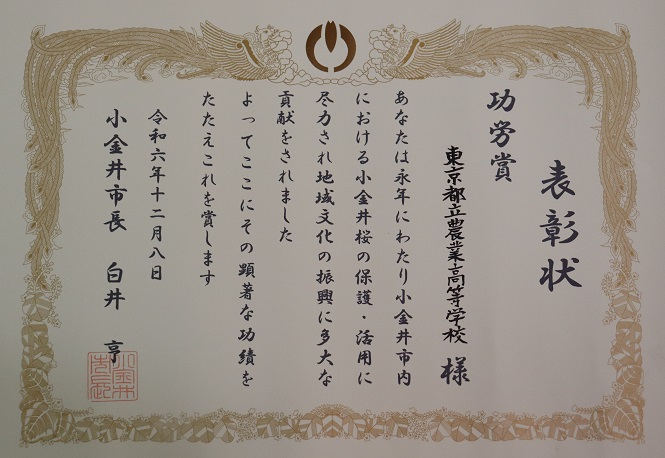 表彰状
功労賞
東京都立農業高等学校 様
あなたは永年にわたり小金井市内
における小金井桜の保護・活用に
尽力され地域文化の振興に多大な
貢献をされました
よってここにその顕著な功績を
たたえこれを賞します
令和六年十二月八日
小金井市長 白井 亨